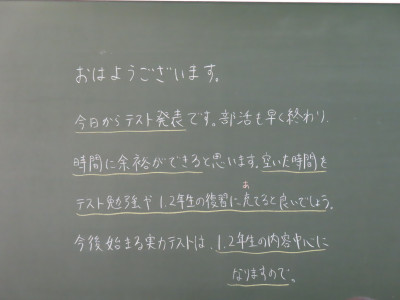 おはようございます。
今日からテスト発表です。部活も早く終わり、
時間に余裕ができると思います。空いた時間を
テスト勉強や1.2年生の復習に充てると良いでしょう。
今後始まる実力テストは、1.2年生の内容中心に
なりますので。